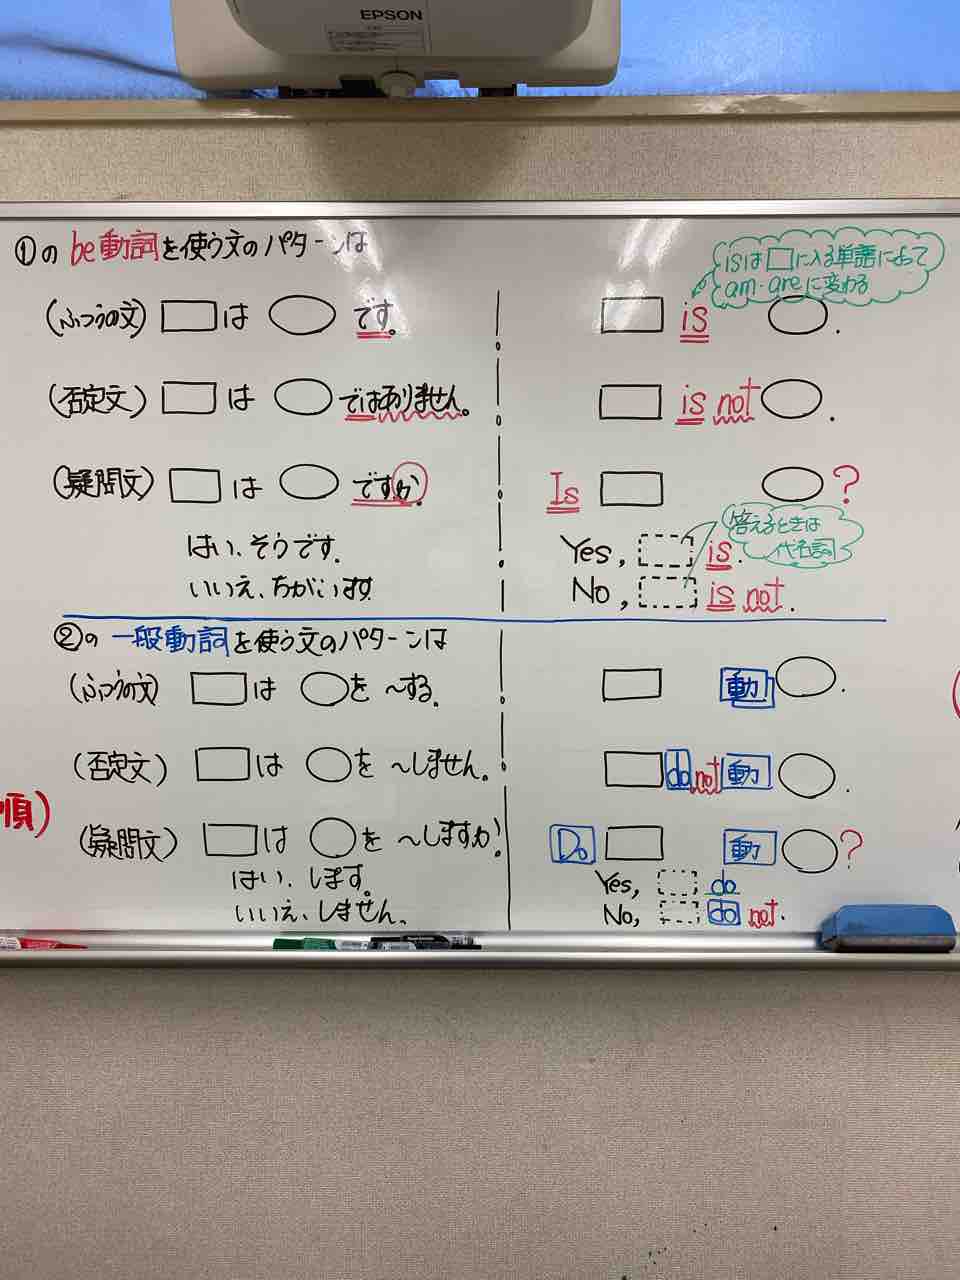 EPSON
①の be動詞を使う文のパターンは
isは□に入る単語によって
am・areに変わる
(ふつうの文) □は ○ です。
□ is ○.
(否定文) □は ○ ではありません。
□ is not ○.
(疑問文) □は ○ ですか。
Is □ ○?
答えるときは
代名詞
はい、そうです。
Yes, □ is.
いいえ、ちがいます
No, □ is not.
②の 一般動詞を使う文のパターンは
(ふつうの文) □は ○を ~する。
□ 動 ○.
(否定文) □は ○を ~しません。
□ do not 動 ○.
順)
(疑問文) □は ○を ~しますか?
Do □ 動 ○?
はい、します。
Yes, □ do
いいえ、しません。
No, □ do not.